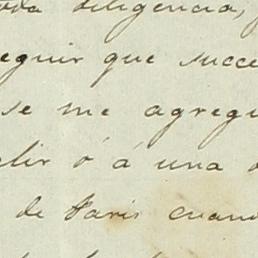 oda diligencia,
eguir que succe
se me agregu
elir ó á una
de Paris cuand